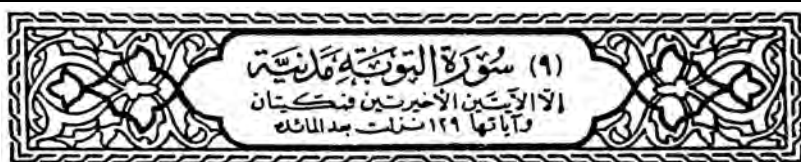 (٩) سُورَة التوبَة مَدنيَّة
إلّا الآيَتين الأخيرتين فمكيتان
وآياتها ١٢٩ نزلت بعد المائدة